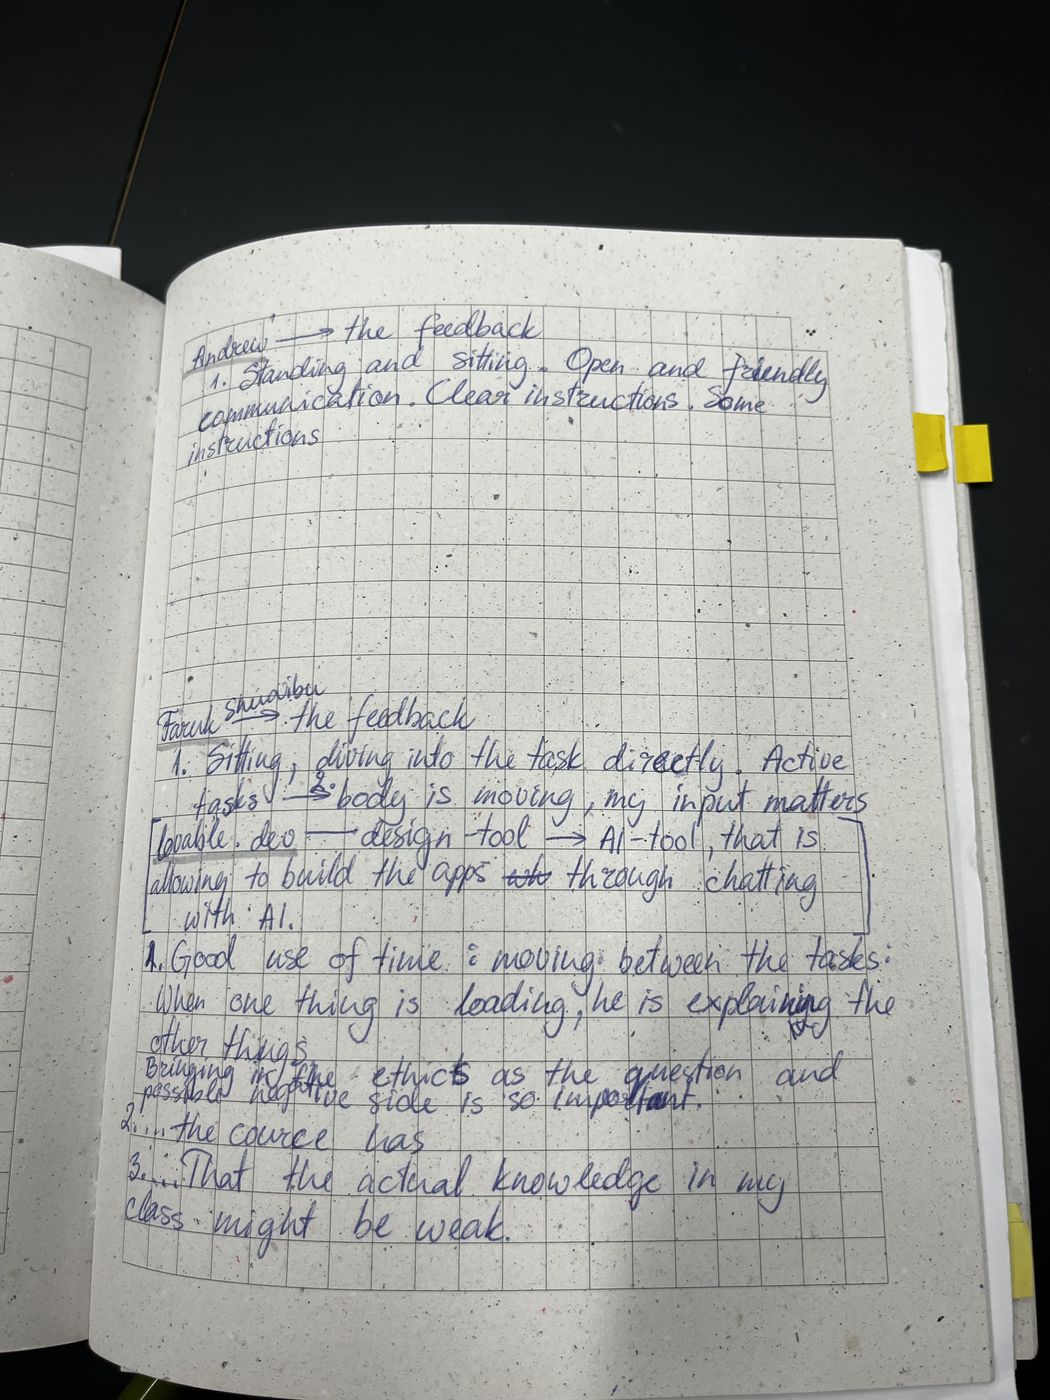 Andrew → the feedback
1. Standing and sitting. Open and friendly
communication. Clear instructions. Some
instructions
Faruk Shuaibu → the feedback
1. Sitting, diving into the task directly. Active
tasks → body is moving, my input matters
[lovable.dev — design-tool → AI-tool, that is
allowing to build the apps through chatting
with AI.]
1. Good use of time: moving between the tasks:
When one thing is loading, he is explaining the
other things
Bringing in the ethics as the question and
possible negative side is so important.
2.... the cource has
3.... That the actual knowledge in my
class might be weak.